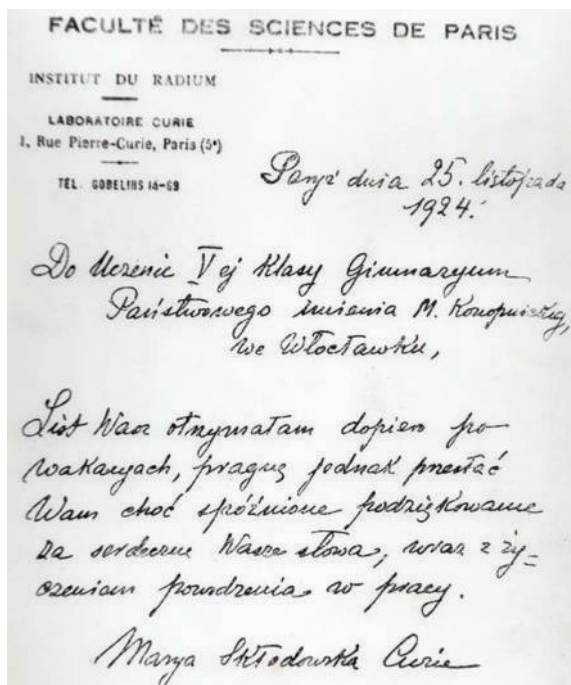 FACULTÉ DES SCIENCES DE PARIS
INSTITUT DU RADIUM
LABORATOIRE CURIE
1, Rue Pierre-Curie, Paris (5e)
TÉL. GOBELINS 14-69
Paryż dnia 25. listopada
1924.
Do Uczenic V ej Klasy Gimnazyum
Państwowego imienia M. Konopnickiej,
we Włocławku,
List Wasz otrzymałam dopiero po
wakacyach, pragnę jednak przesłać
Wam choć spóźnione podziękowanie
za serdeczne Wasze słowa, wraz z ży-
czeniam powodzenia w pracy.
Marya Skłodowska Curie